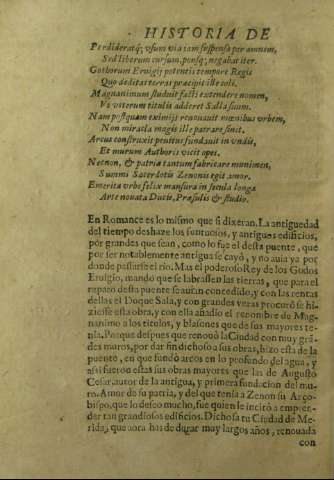 HISTORIA DE
Perdideratq; vsum via tam suspensa per amnem,
Sed liberum cursum, ponsq; negabat iter.
Gothorum Ervigij potentis tempore Regis
Quo deditas terras præcipit ille coli.
Magnanimum studuit factis extendere nomen,
Vt veterum titulis adderet Salla suum.
Nam postquam eximijs renouauit mœnibus vrbem,
Non miracla magis ille patrare sinit.
Arcus construxit penitus fundauit in vndis,
Et mirum Authoris vicit opus.
Necnon, & patria tantum fabricare munimen,
Summi Sacerdotis Zenonis egit amor.
Emerita vrbs felix mansura in secula longa
Arte nouata Ducis, Præsulis & studio.
En Romance es lo mismo que si dixeran. La antiguedad
del tiempo deshaze los suntuosos, y antiguos edificios,
por grandes que sean, como lo fue el desta puente, que
por ser notablemente antigua se cayò, y no auia ya por
donde passarse el rio. Mas el poderoso Rey de los Godos
Eruigio, mando que se labrassen las tierras, que para el
reparo desta puente se auian concedido, y con las rentas
dellas el Duque Sala, y con grandes veras procurò se hi-
ziesse esta obra, y con ella añadio el renombre de Mag-
nanimo a los titulos, y blasones que de sus mayores te-
nia. Porque despues que renouò la Ciudad con muy grã-
des muros, por dar fin dichoso a sus obras, hizo esta de la
puente, en que fundò arcos en lo profundo del agua, y
assi fueron estas sus obras mayores que las de Augusto
Cesar, autor de la antigua, y primera fundacion del mu-
ro. Amor de su patria, y del que tenia a Zenon su Arço-
bispo, que lo desseo mucho, fue quien le incitò a empren-
der tan grandiosos edificios. Dichosa tu Ciudad de Me-
rida, que aora has de durar muy largos años, renouada
con